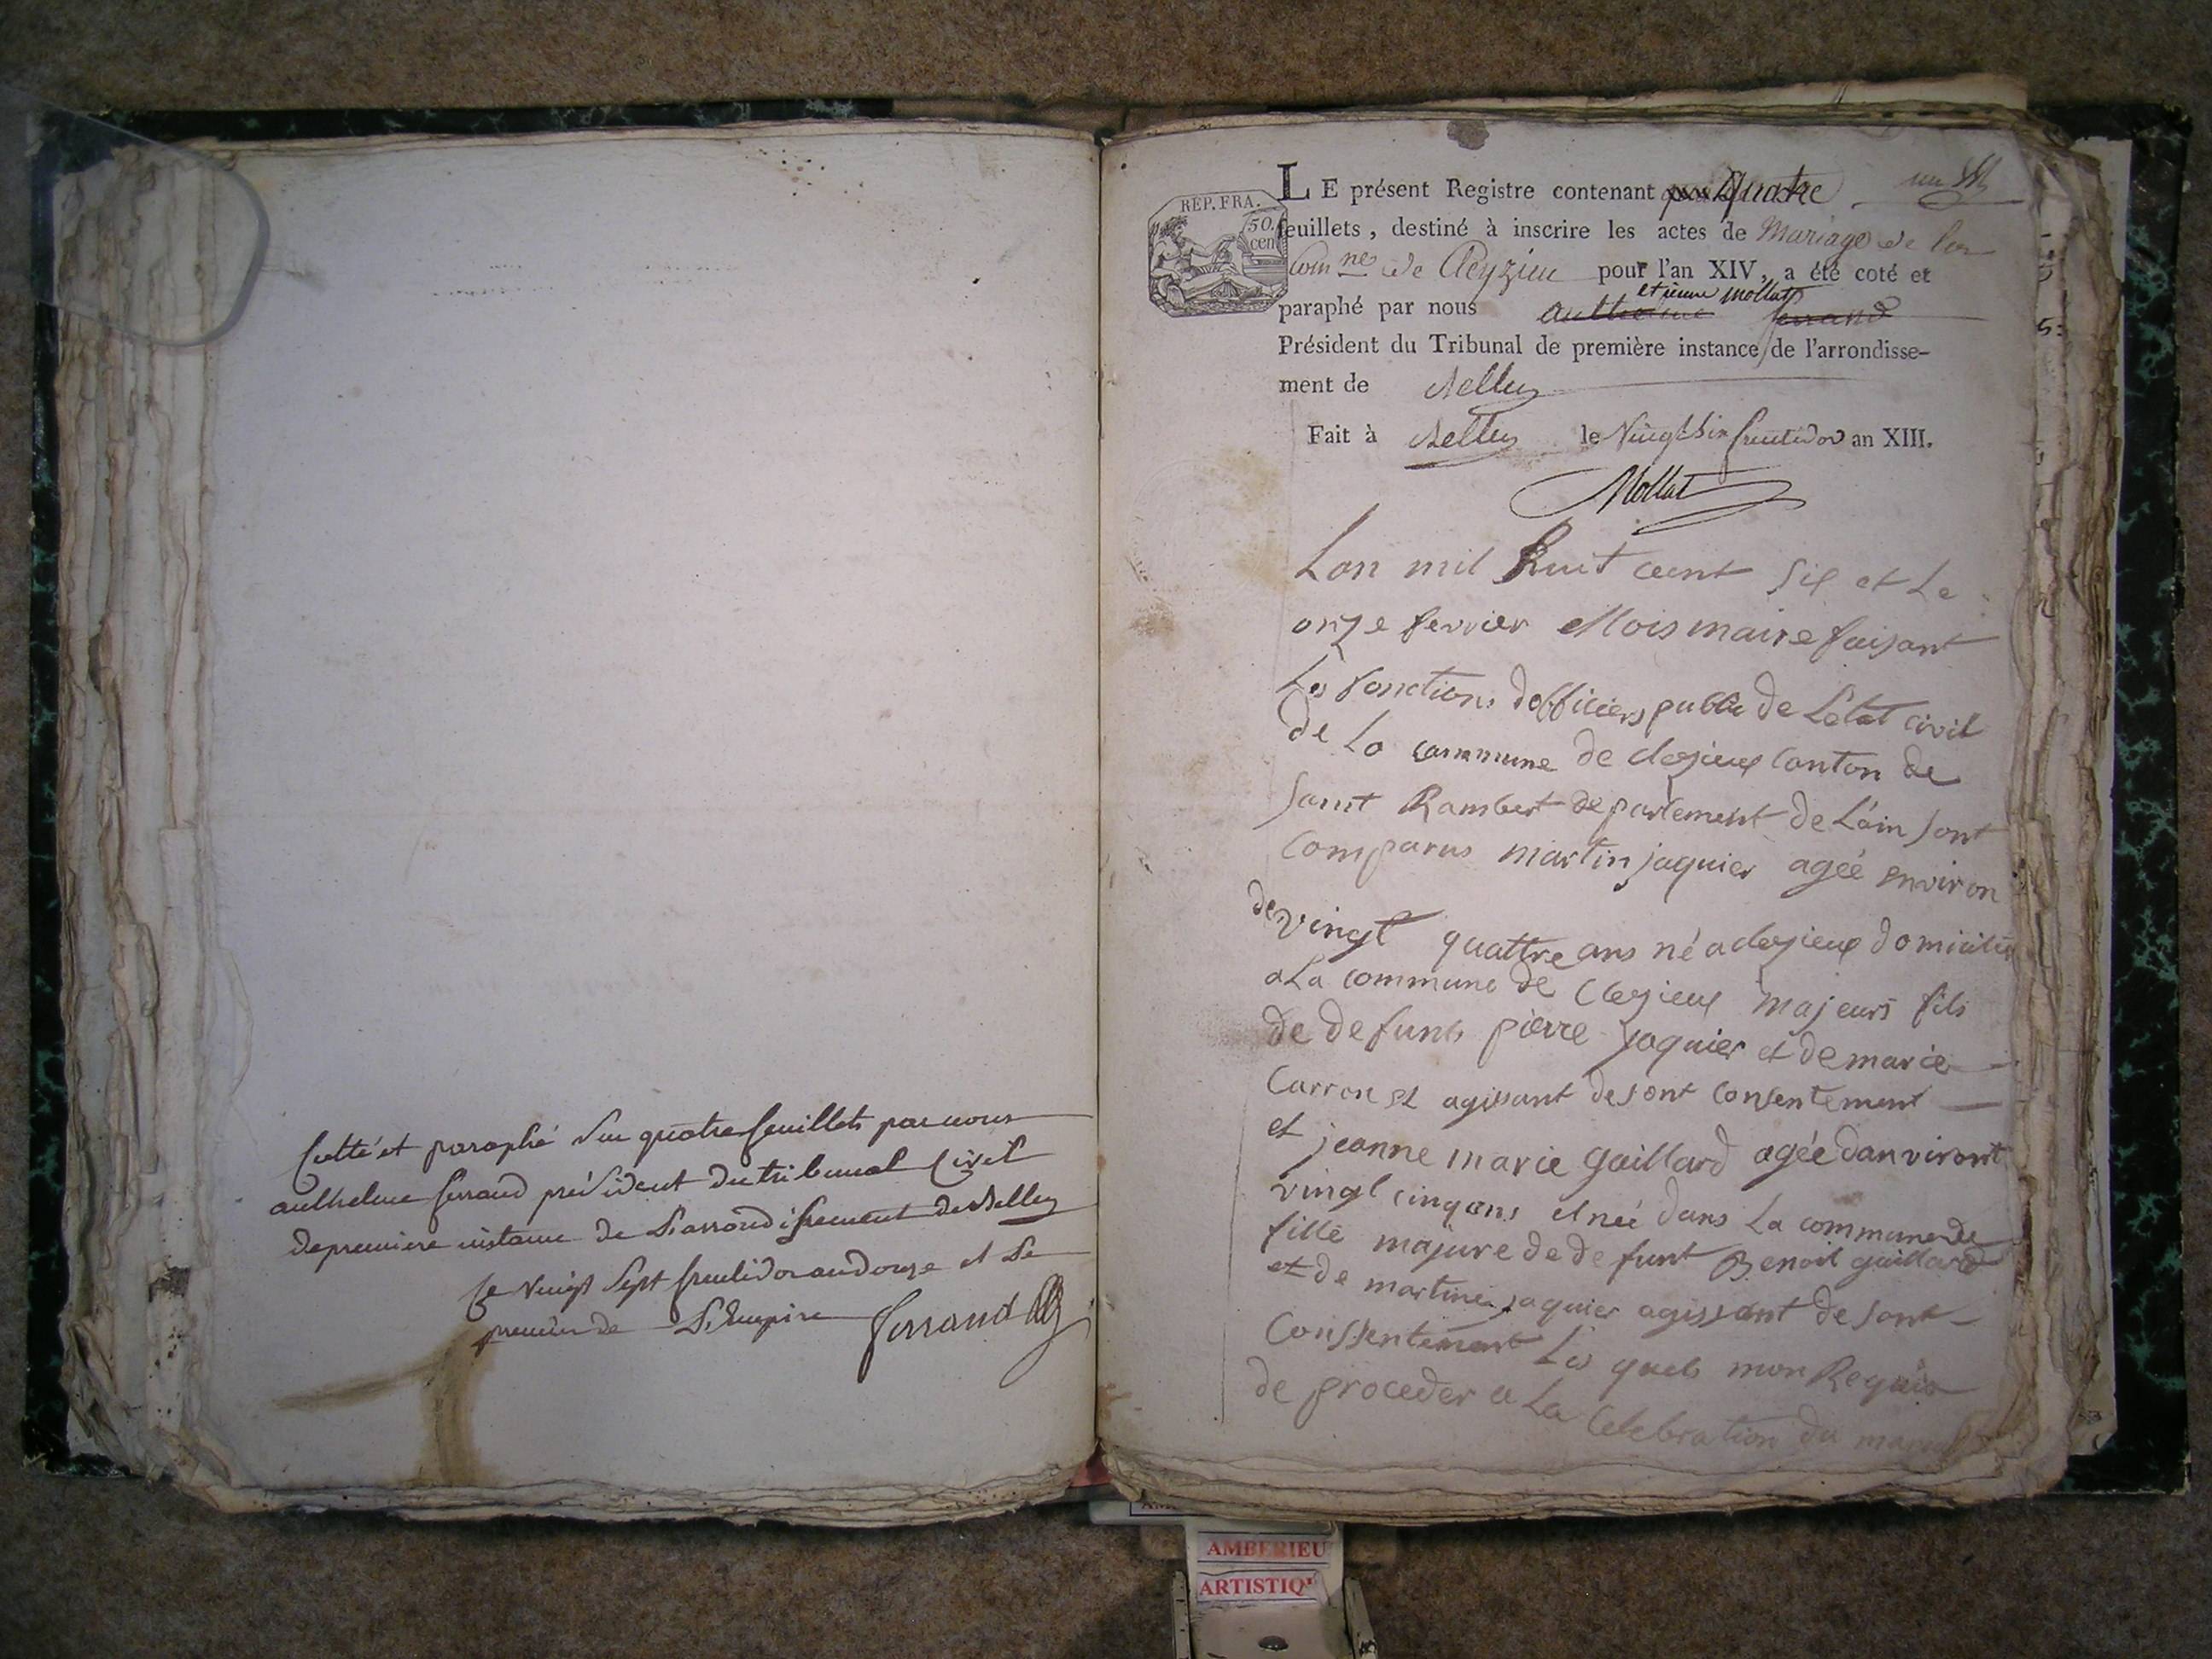 Cotté et paraphé sur quatre feuillets par nous
anthelme ferrand président du tribunal Civil
de premiere instance de L'arrondissement de Belley
Ce vingt Sept fructidor an douze et Le
premier de L'Empire ferrand
REP. FRA.
50. cen
LE présent Registre contenant Quatre un
feuillets, destiné à inscrire les actes de Mariage de la
Comne de Cleyzieu pour l'an XIV, a été coté et
etienne mollat
paraphé par nous anthelme ferrand
Président du Tribunal de première instance de l'arrondisse-
ment de Belley
Fait à Belley le Vingt Six fructidor an XIII.
Mollat
Lan mil huit cent Six et Le
onze fevrier Mois maire faisant
Les fonctions dofficiers public de L'etat civil
de La commune de clesieux Canton de
Saint Rambert departement de L'ain Sont
Comparus martin jaquier ageé environ
de vingt quattre ans né a clesieux domicilié
a La commune de Clesieux majeurs fils
de defunts pierre jaquier et de marie
Carron et agissant de sont Consentement
et jeanne marie gaillard agée danviront
vingt cinq ans et neé dans La commune de
fille majure de defunt Benoit guillard
et de martine jaquier agissant de sont
Conssentement Les quels mon Requis
de proceder a La Celebration du
AMBERIEU
ARTISTIQ